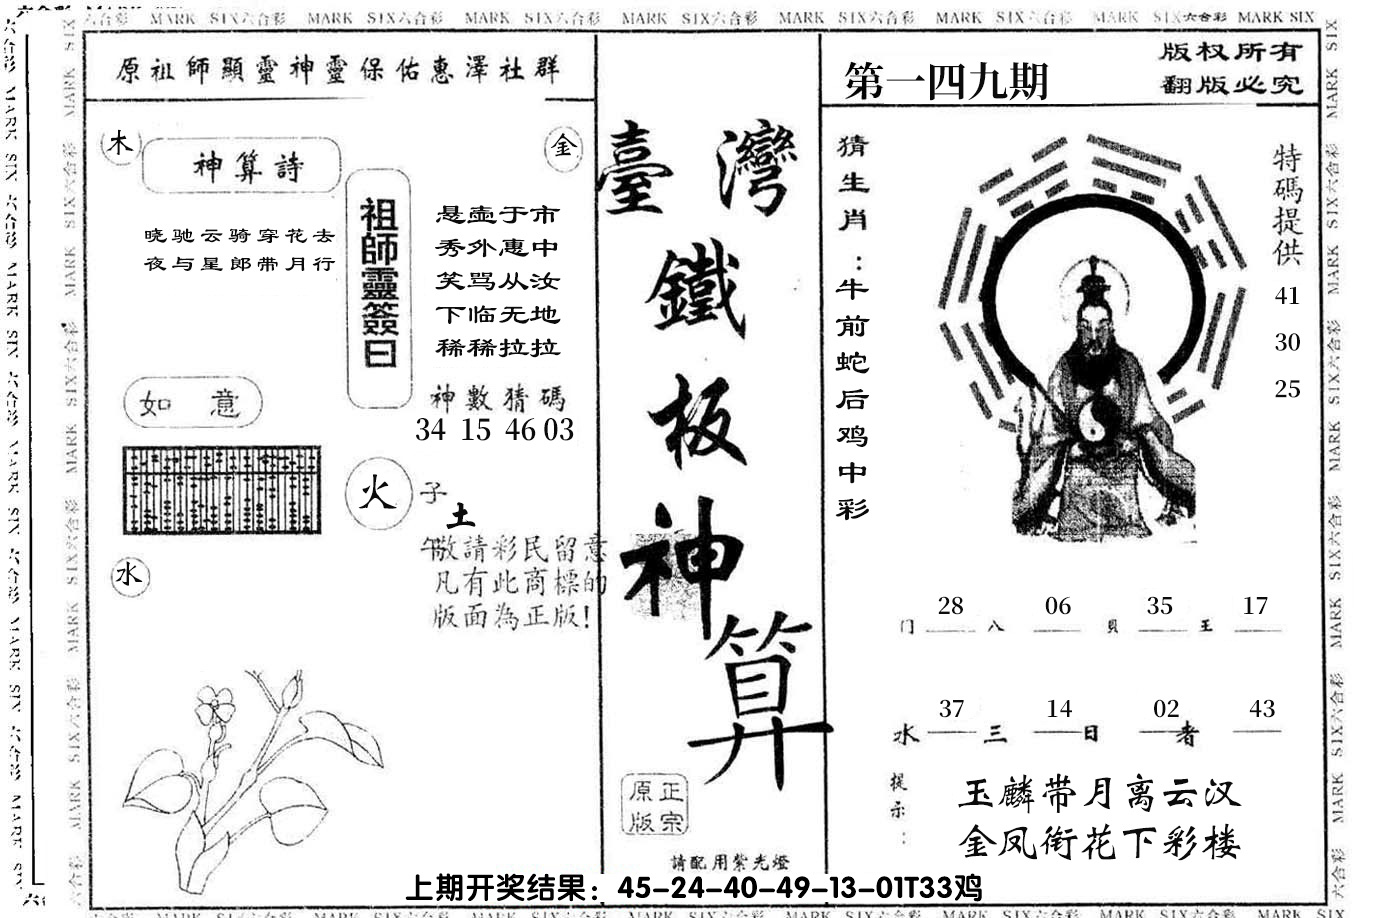 六合彩 MARK SIX六合彩 MARK SIX六合彩 MARK SIX六合彩 MARK SIX六合彩 MARK SIX六合彩 MARK SIX六合彩 MARK SIX六合彩 MARK SIX
原祖師顯靈神靈保佑惠澤社群
木
神算詩
金
晓驰云骑穿花去
夜与星郎带月行
祖師靈簽曰
悬壶于市
秀外惠中
笑骂从汝
下临无地
稀稀拉拉
神數猜碼
34 15 46 03
如 意
火
子
土
午
水
敬請彩民留意
凡有此商標的
版面為正版!
臺灣
鐵
板
神
算
正宗
原版
請配用紫光燈
第一四九期
版权所有
翻版必究
猜生肖：牛前蛇后鸡中彩
特碼提供
41
30
25
28 06 35 17
门 八 貝 王
37 14 02 43
水 三 日 者
提示：
玉麟带月离云汉
金凤衔花下彩楼
上期开奖结果：45-24-40-49-13-01T33鸡